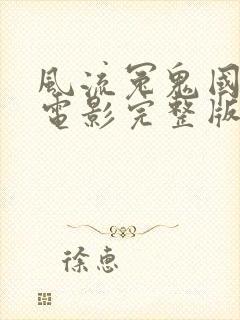 風流冤鬼國
電影完整版
徐惠